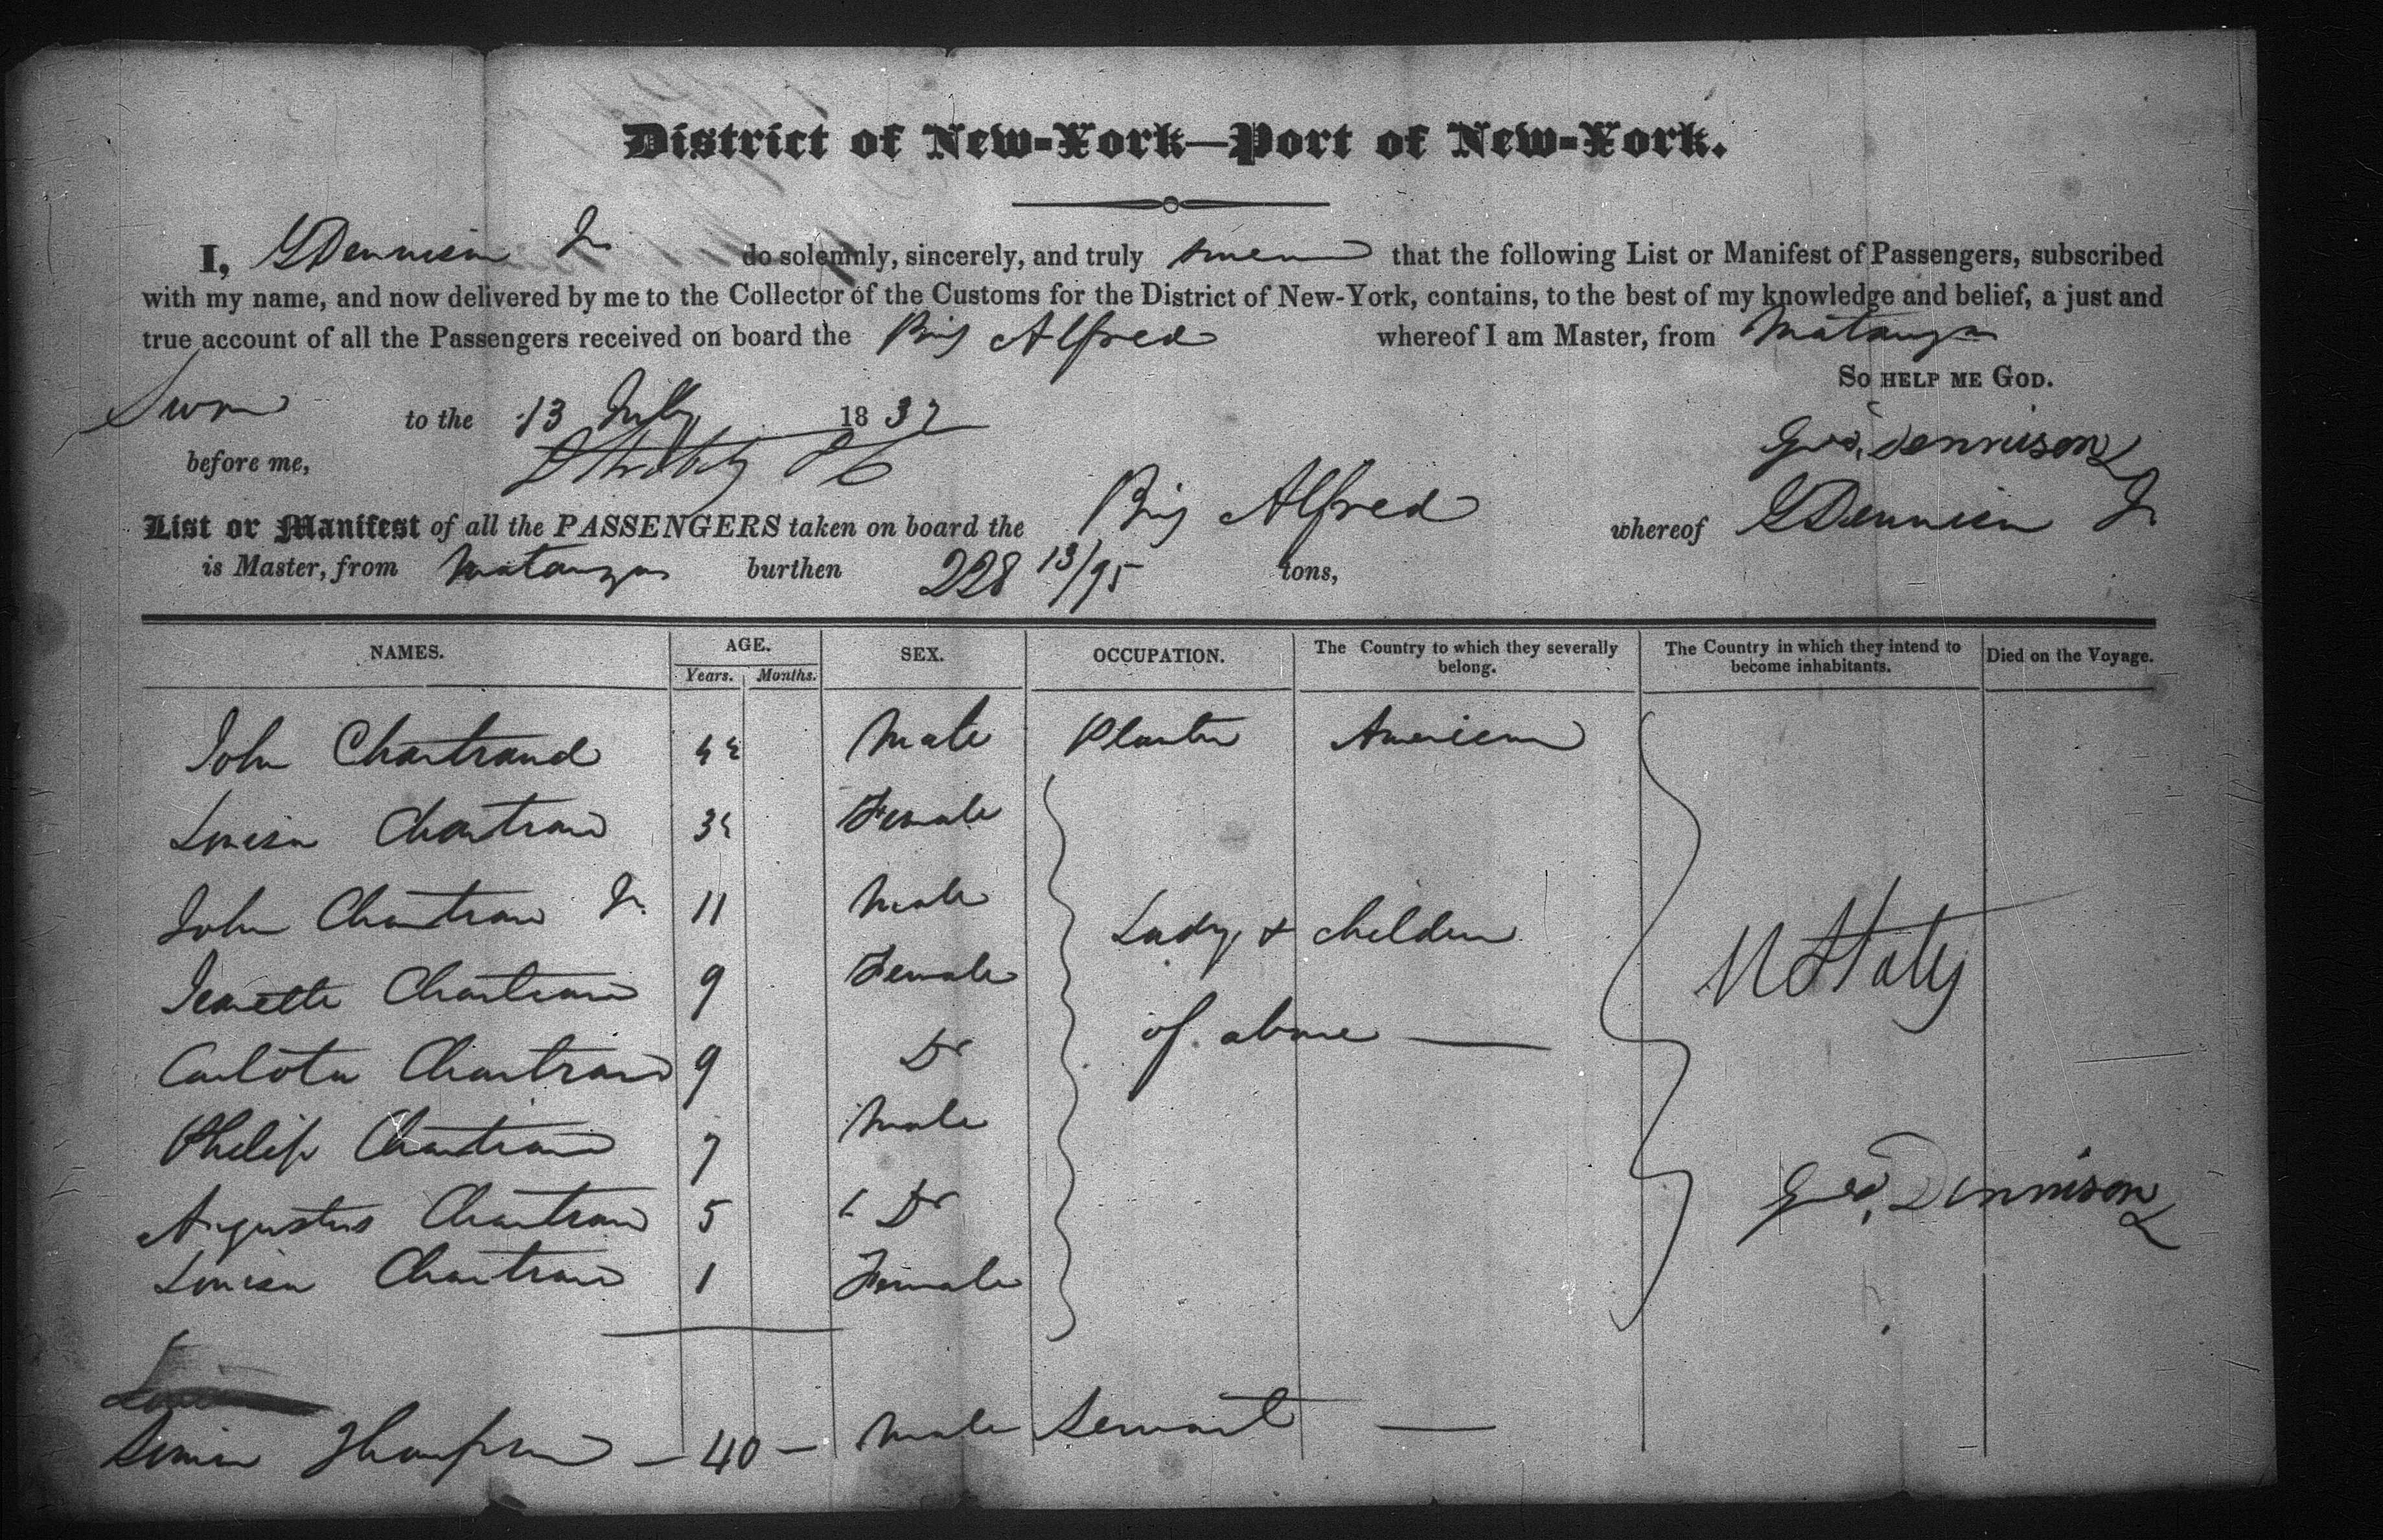 District of New-York—Port of New-York.
I, G Dennison Jr do solemnly, sincerely, and truly swear that the following List or Manifest of Passengers, subscribed
with my name, and now delivered by me to the Collector of the Customs for the District of New-York, contains, to the best of my knowledge and belief, a just and
true account of all the Passengers received on board the Brig Alfred whereof I am Master, from Matanzas
So help me God.
Sworn to the 13 July 1832
Geo, Dennison
before me,
List or Manifest of all the PASSENGERS taken on board the Brig Alfred whereof G Dennison Jr
is Master, from Matanzas burthen 228 13/95 tons,
NAMES. AGE. SEX. OCCUPATION. The Country to which they severally belong. The Country in which they intend to become inhabitants. Died on the Voyage.
Years. Months.
John Chartrand Male Planter American
Louisa Chartrand Female
John Chartrand Jr. 11 Male Lady & children
Jeanette Chartrand 9 Female U States
Carlota Chartrand 9 Do of above —
Philip Chartrand 7 Male
Augustus Chartrand 5 Do Geo, Dennison
Louisa Chartrand 1 Female
Simon Thompson — 40 — Male Servant —